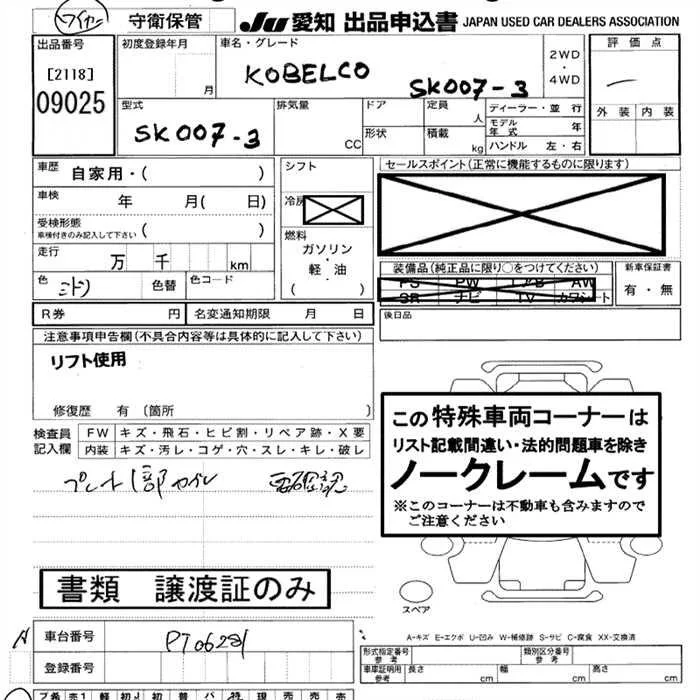 ワイヤー 守衛保管 JU 愛知 出品申込書 JAPAN USED CAR DEALERS ASSOCIATION
出品番号 初度登録年月 車名・グレード 評価点
[2118] 月 KOBELCO SK007-3 2WD・4WD
09025 型式 排気量 ドア 定員 人 ディーラー・並行 外装 内装
SK007-3 CC 形状 積載 kg モデル年式 年
ハンドル 左・右
車歴 自家用・( ) シフト セールスポイント(正常に機能するものに限ります)
車検 年 月( 日) 冷房
受検形態 ( )
車検付きのみ記入して下さい
燃料
走行 万 千 km ガソリン・軽・油
( )
装備品(純正品に限り○をつけてください) 新車保証書
色 ミドリ 色替 色コード PS PW エアB AW 有・無
SR ナビ TV カワシート
R券 円 名変通知期限 月 日 後日品
注意事項申告欄(不具合内容等は具体的に記入して下さい)
リフト使用
修復歴 有 (箇所 )
検査員記入欄 FW キズ・飛石・ヒビ割・リペア跡・X要
内装 キズ・汚レ・コゲ・穴・スレ・キレ・破レ
この特殊車両コーナーは
リスト記載間違い・法的問題車を除き
ノークレームです
※このコーナーは不動車も含みますので
ご注意ください
書類 譲渡証のみ
スペア
A-キズ E-エクボ U-凹み W-補修跡 S-サビ C-腐食 XX-交換済
車台番号 PT06281
登録番号
形式指定番号 参考 類別区分番号 参考
車車証明用 参考 長さ cm 幅 cm 高さ cm